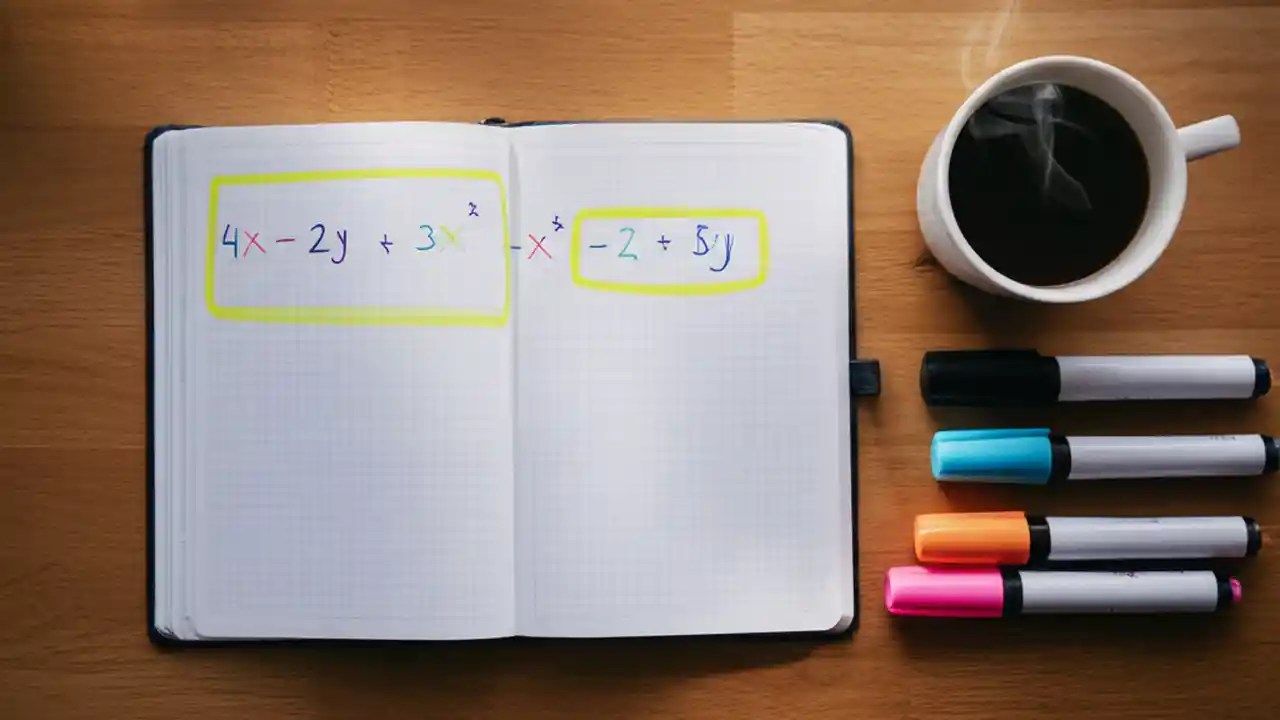 4x - 2y + 3x² - x - 2 + 5y